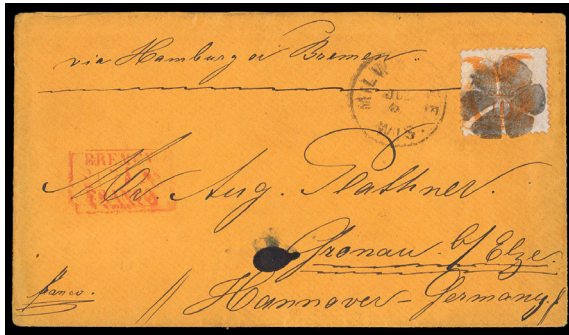 via Hamburg or Bremen.
MILW
WIS.
BREMEN
Franco
Mr. Aug. Plathner.
Gronau. b/Elze.
franco.
Hannover-Germany.